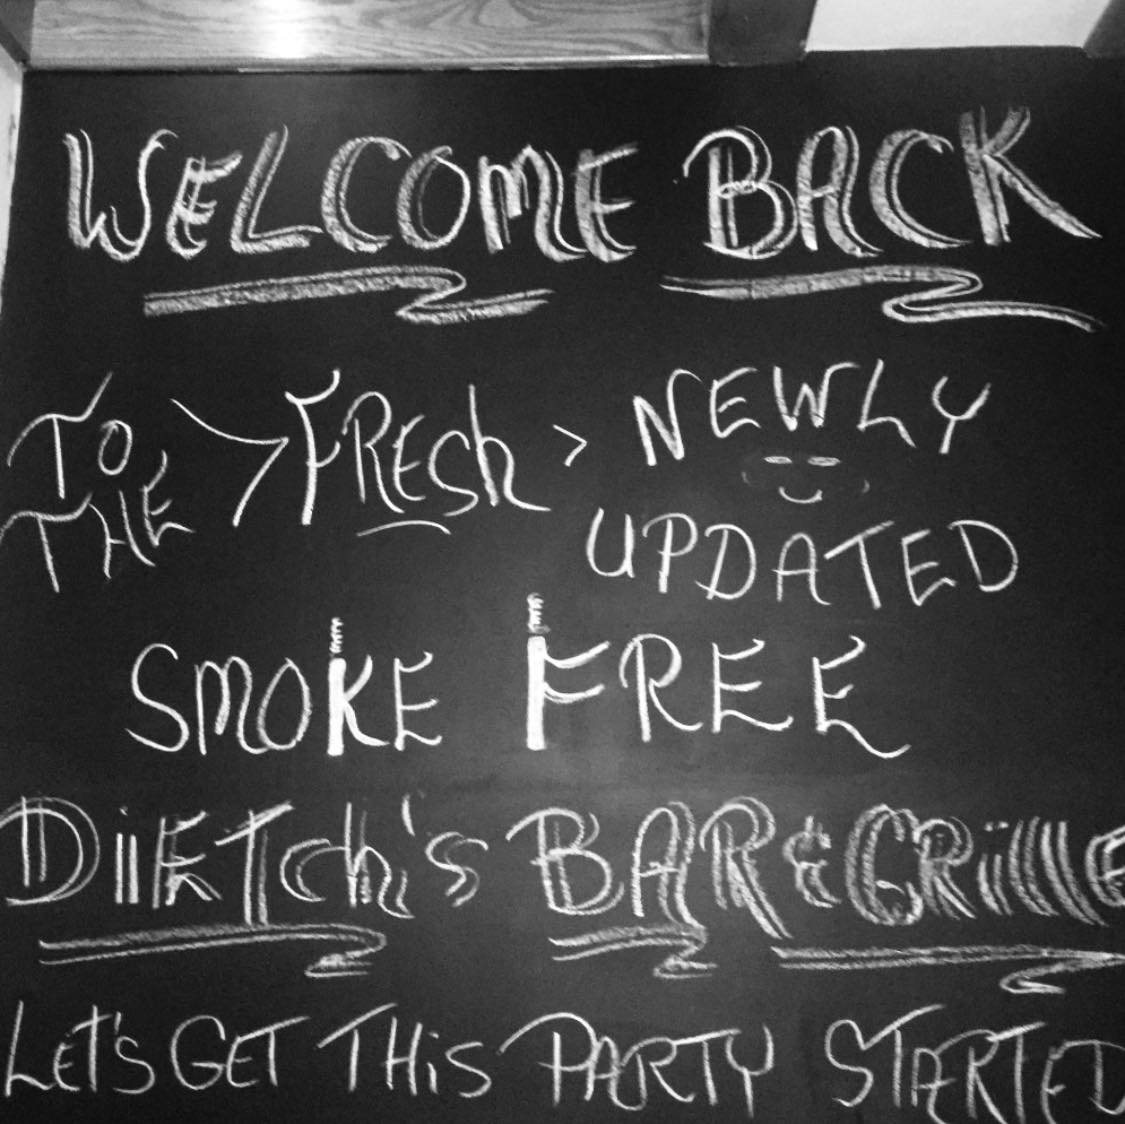 WELCOME BACK
TO THE > FRESh > NEWLY
UPDATED
SMOKE FREE
DiETch's BAR & GRille
LET'S GET THiS PARTY STARTED